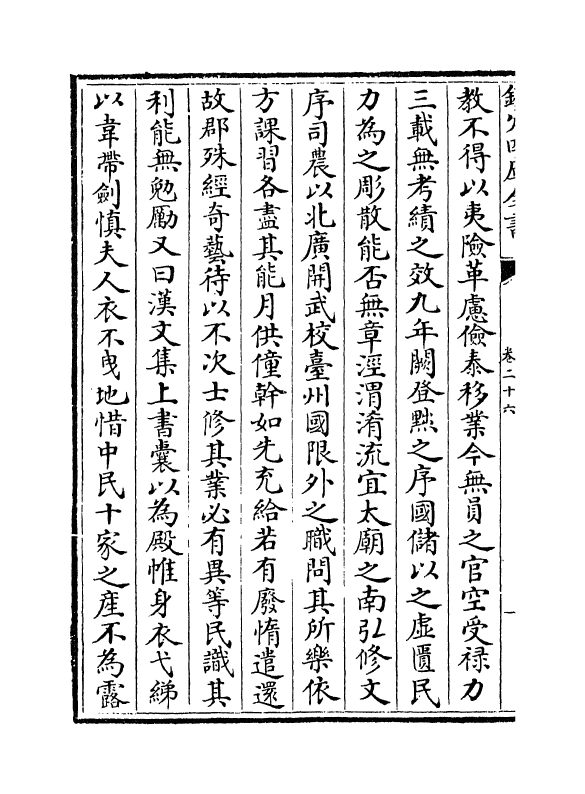 欽定四庫全書
卷二十六
一
教不得以夷險革慮儉泰移業今無員之官空受祿力
三載無考績之效九年闕登黜之序國儲以之虛匱民
力為之彫散能否無章涇渭淆流宜太廟之南弘修文
序司農以北廣開武校臺州國限外之職問其所樂依
方課習各盡其能月供僮幹如先充給若有廢惰遣還
故郡殊經奇藝待以不次士修其業必有異等民識其
利能無勉勵又曰漢文集上書囊以為殿帷身衣弋綈
以韋帶劍慎夫人衣不曳地惜中民十家之產不為露